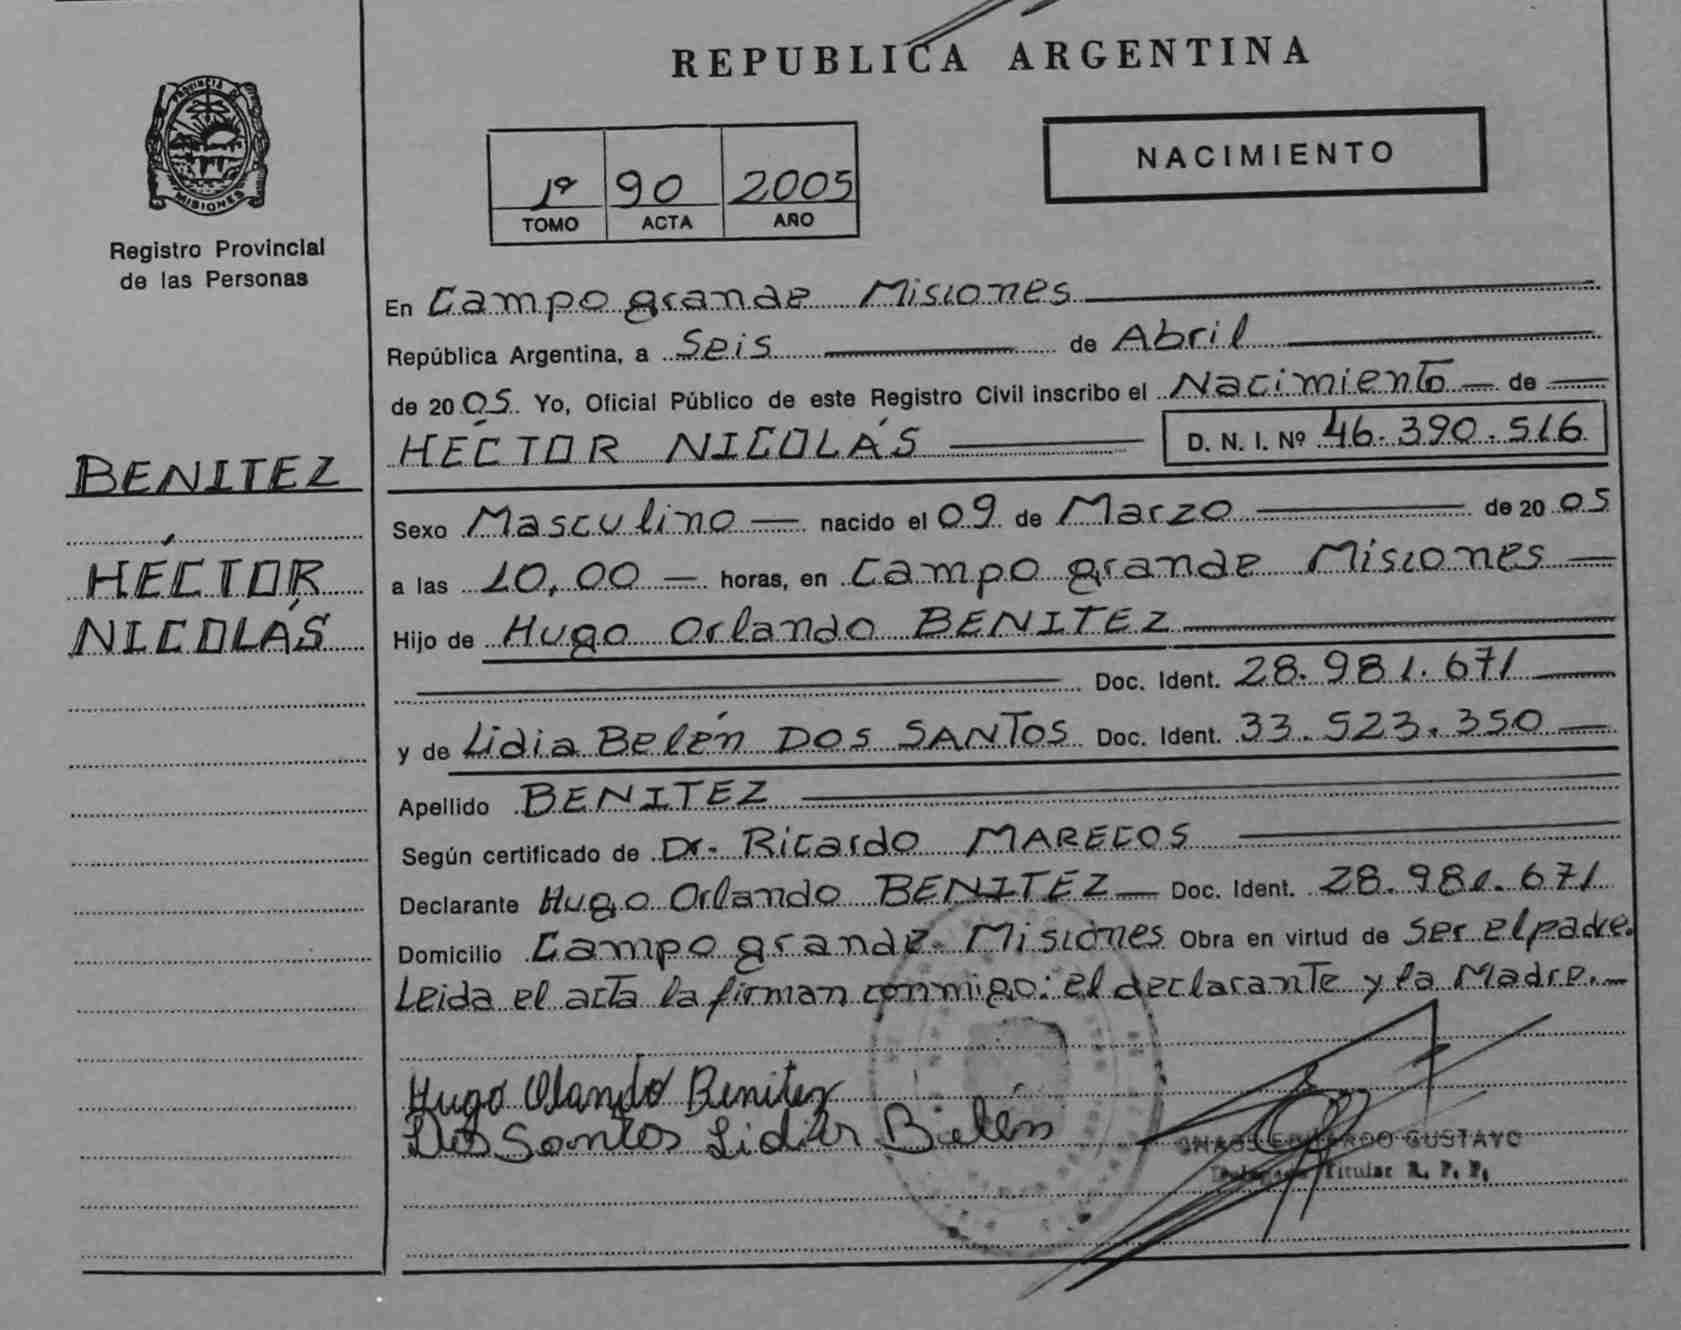 REPUBLICA ARGENTINA
PROVINCIA DE
MISIONES
Registro Provincial
de las Personas
1º 90 2005
TOMO ACTA AÑO
NACIMIENTO
BENITEZ
HÉCTOR
NICOLÁS
En Campo grande Misiones
República Argentina, a Seis de Abril
de 2005. Yo, Oficial Público de este Registro Civil inscribo el Nacimiento de
HÉCTOR NICOLÁS D. N. I. Nº 46.390.516
Sexo Masculino nacido el 09 de Marzo de 2005
a las 10,00 horas, en Campo grande Misiones
Hijo de Hugo Orlando BENITEZ
Doc. Ident. 28.981.671
y de Lidia Belén DOS SANTOS Doc. Ident. 33.523.350
Apellido BENITEZ
Según certificado de Dr. Ricardo MARECOS
Declarante Hugo Orlando BENITEZ Doc. Ident. 28.981.671
Domicilio Campo grande Misiones Obra en virtud de ser el padre.
Leida el acta la firman conmigo: el declarante y la Madre.
Hugo Olando Benitez
Dos Santos Lidia Belén
GUSTAVO
Titular R. P. P.